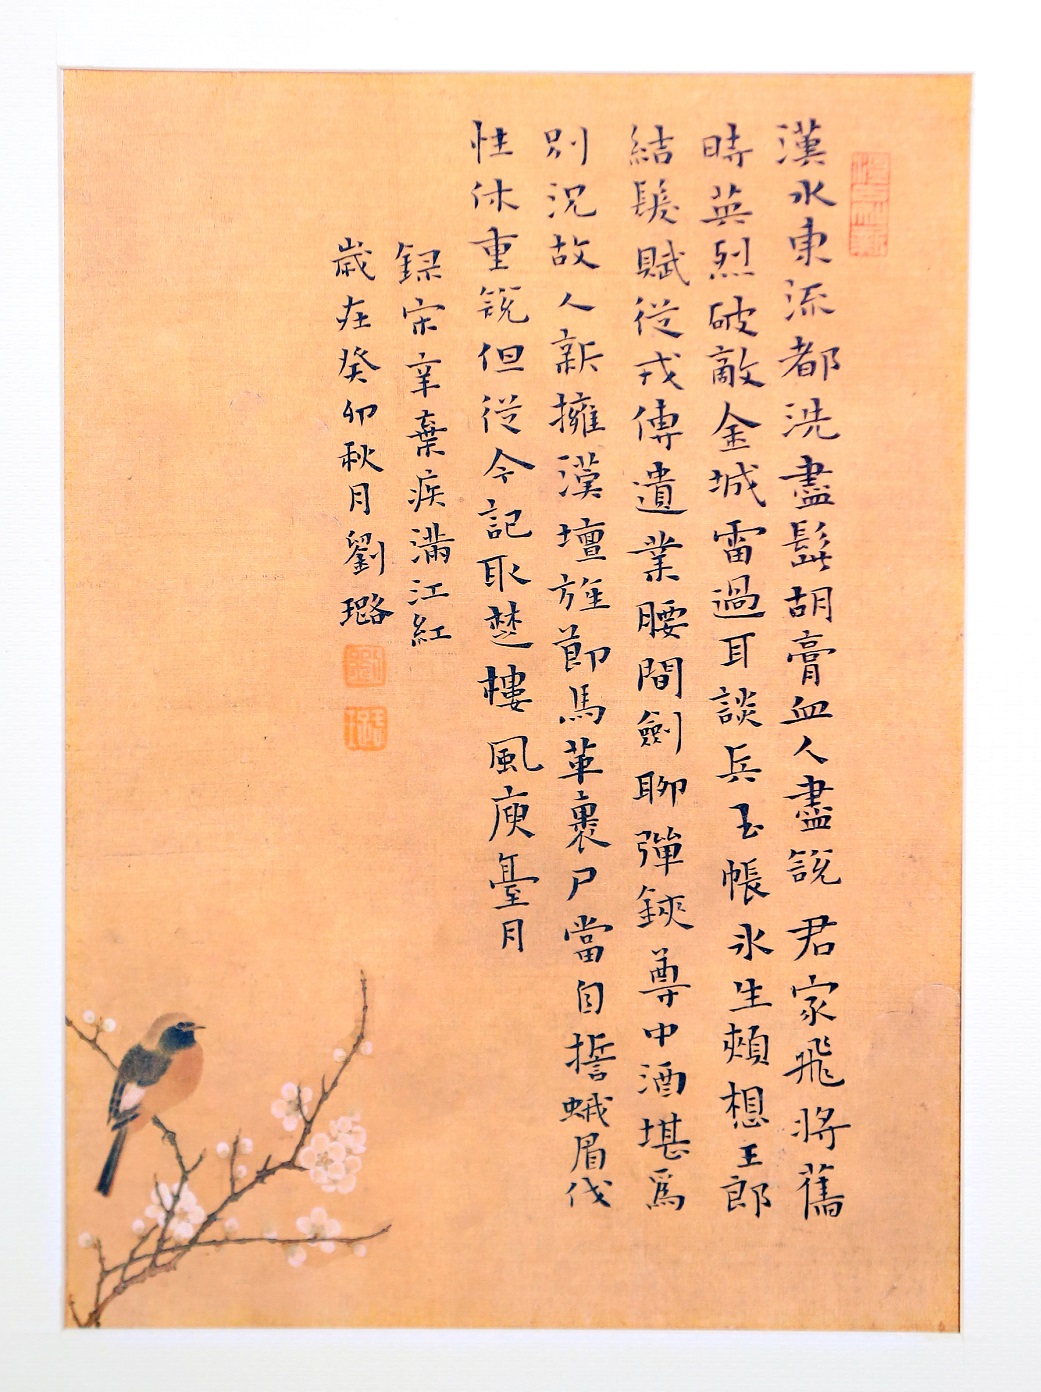 漢水東流都洗盡髭胡膏血人盡說君家飛將舊
時英烈破敵金城雷過耳談兵玉帳冰生頰想王郎
結髮賦從戎傳遺業腰間劍聊彈鋏尊中酒堪爲
別況故人新擁漢壇旌節馬革裹尸當自誓蛾眉伐
性休重說但從今記取楚樓風庾臺月
録宋辛棄疾滿江紅
歲在癸卯秋月劉璐